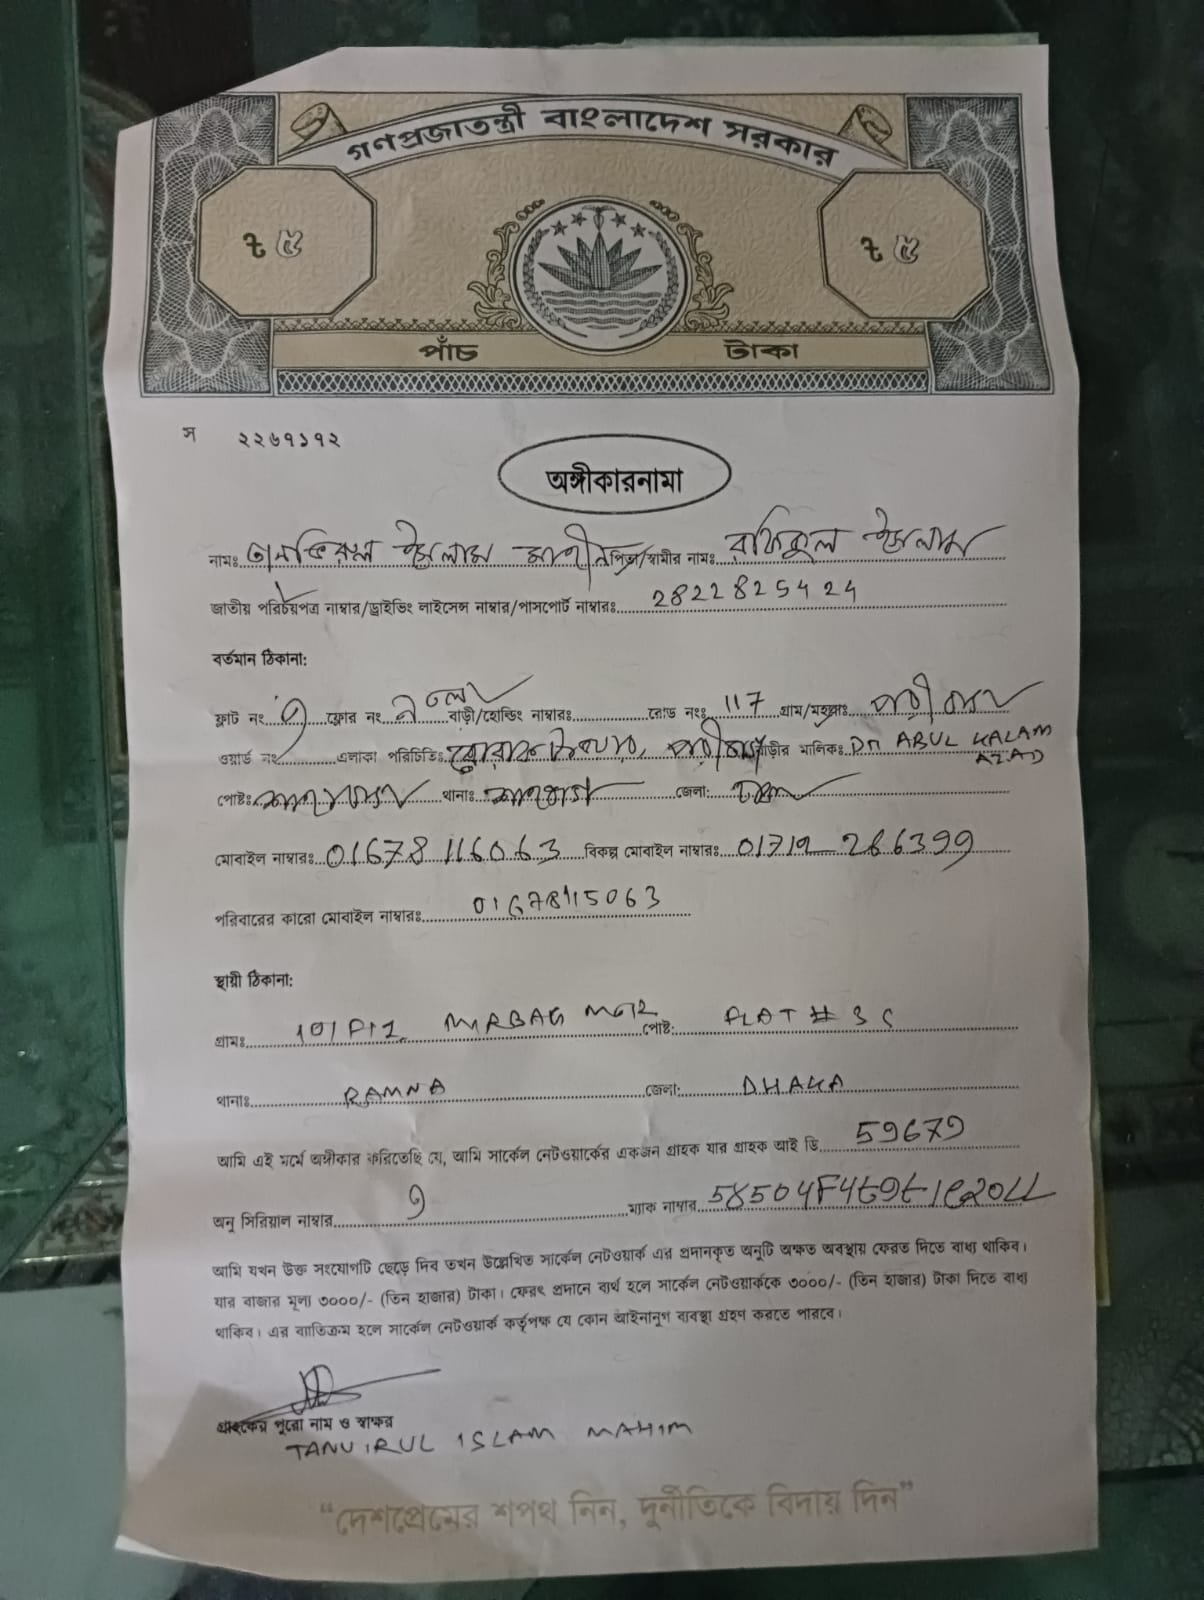 গণপ্রজাতন্ত্রী বাংলাদেশ সরকার
৳ ৫ ৳ ৫
পাঁচ টাকা
স ২২৬৭১৭২
অঙ্গীকারনামা
নামঃ তানভিরুল ইসলাম মাহীম পিতা/স্বামীর নামঃ রফিকুল ইসলাম
জাতীয় পরিচয়পত্র নাম্বার/ড্রাইভিং লাইসেন্স নাম্বার/পাসপোর্ট নাম্বারঃ 2822825424
বর্তমান ঠিকানা:
ফ্লাট নং ফ্লোর নং বাড়ী/হোল্ডিং নাম্বারঃ রোড নংঃ 117 গ্রাম/মহল্লাঃ
ওয়ার্ড নং এলাকা পরিচিতিঃ বাড়ীর মালিকঃ DR ABUL KALAM AZAD
পোষ্টঃ থানাঃ জেলা: ঢাকা
মোবাইল নাম্বারঃ 01678116063 বিকল্প মোবাইল নাম্বারঃ
পরিবারের কারো মোবাইল নাম্বারঃ 01678115063
স্থায়ী ঠিকানা:
গ্রামঃ পোষ্ট: FLAT # 3C
থানাঃ RAMNA জেলা: DHAKA
আমি এই মর্মে অঙ্গীকার করিতেছি যে, আমি সার্কেল নেটওয়ার্কের একজন গ্রাহক যার গ্রাহক আই ডি 59679
অনু সিরিয়াল নাম্বার ম্যাক নাম্বার
আমি যখন উক্ত সংযোগটি ছেড়ে দিব তখন উল্লেখিত সার্কেল নেটওয়ার্ক এর প্রদানকৃত অনুটি অক্ষত অবস্থায় ফেরত দিতে বাধ্য থাকিব।
যার বাজার মূল্য ৩০০০/- (তিন হাজার) টাকা। ফেরৎ প্রদানে ব্যর্থ হলে সার্কেল নেটওয়ার্ককে ৩০০০/- (তিন হাজার) টাকা দিতে বাধ্য
থাকিব। এর ব্যতিক্রম হলে সার্কেল নেটওয়ার্ক কর্তৃপক্ষ যে কোন আইনানুগ ব্যবস্থা গ্রহণ করতে পারবে।
গ্রাহকের পুরো নাম ও স্বাক্ষর
TANVIRUL ISLAM MAHIM
“দেশপ্রেমের শপথ নিন, দুর্নীতিকে বিদায় দিন”